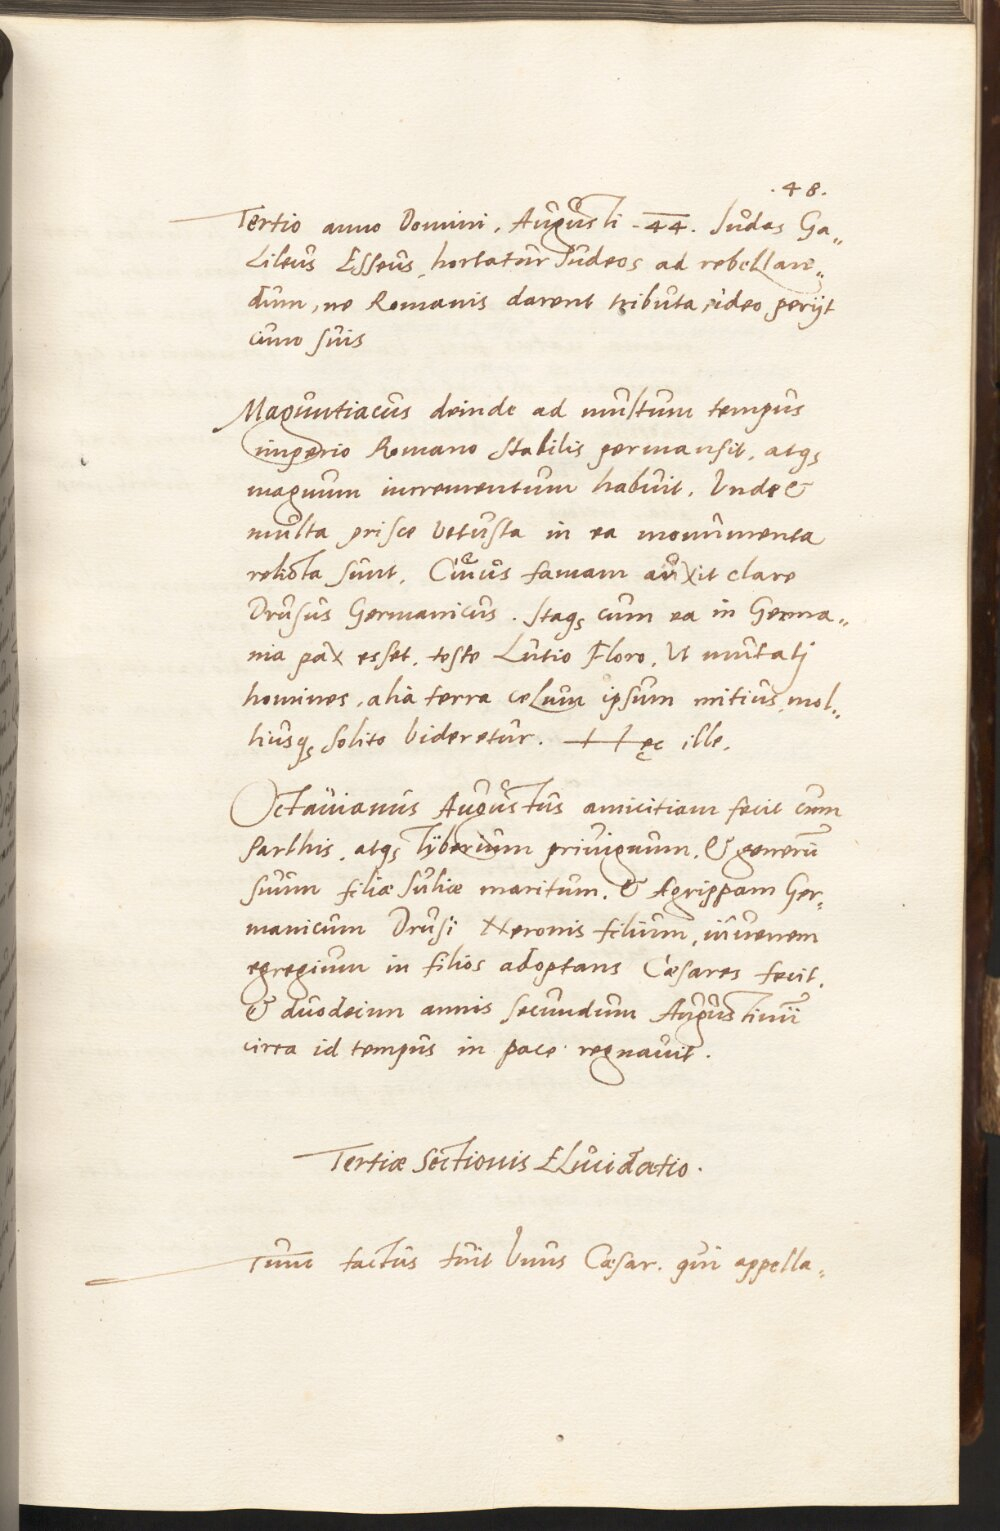 .48.
Tertio anno Domini, Augusti .44. Iudas Ga„
Lileus Esseus, hortatur Iudeos ad rebellan„
dum, ne Romanis darent tributa, ideo perijt
cum suis
Maguntiacus deinde ad multum tempus
imperio Romano stabilis permansit, atqꝫ
magnum incrementum habuit. Unde &
multa prisce vetusta in ea monumenta
relicta sunt, Cuius famam auxit clare
Drusus Germanicus. Itaqꝫ cum ea in Germa„
nia pax esset, teste Lutio Floro, Ut mutatj
homines, alia terra celum ipsum mitius, mol„
liusqꝫ solito videretur. Hęc ille.
Octauianus Augustus amicitiam fecit cum
Parthis, atqꝫ Tyberium priuignum, & generū
suum filiæ Iuliæ maritum, & Agrippam Ger„
manicum Drusi Neronis filium, iuuenem
egregium in filios adoptans Cæsares fecit,
& duodecim annis secundum Augustinū
circa id tempus in pace regnauit.
Tertiæ Sectionis Elucidatio.
Tunc factus fuit Unus Cæsar. qui appella„